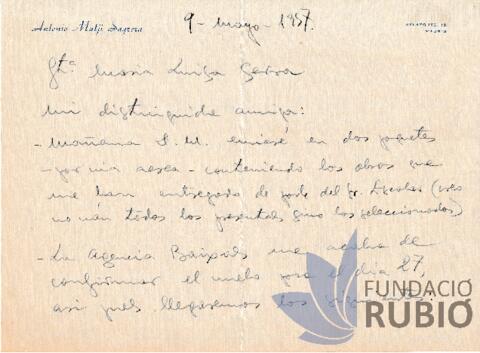 Antonio Matji Sagrera
MADRID
9 - mayo - 1957.
Srtª Maria Luisa Serra
Mi distinguida amiga:
- Mañana S. M. enviaré en dos paquetes
- por via aerea - conteniendo las obras que
me han entregado de parte del Sr.
no van todos los presentados sino los seleccionados)
- La Agencia Baixas me acaba de
confirmar el vuelo para el dia 27,
asi pues, llegaremos los
FUNDACIÓ
RUBIÓ